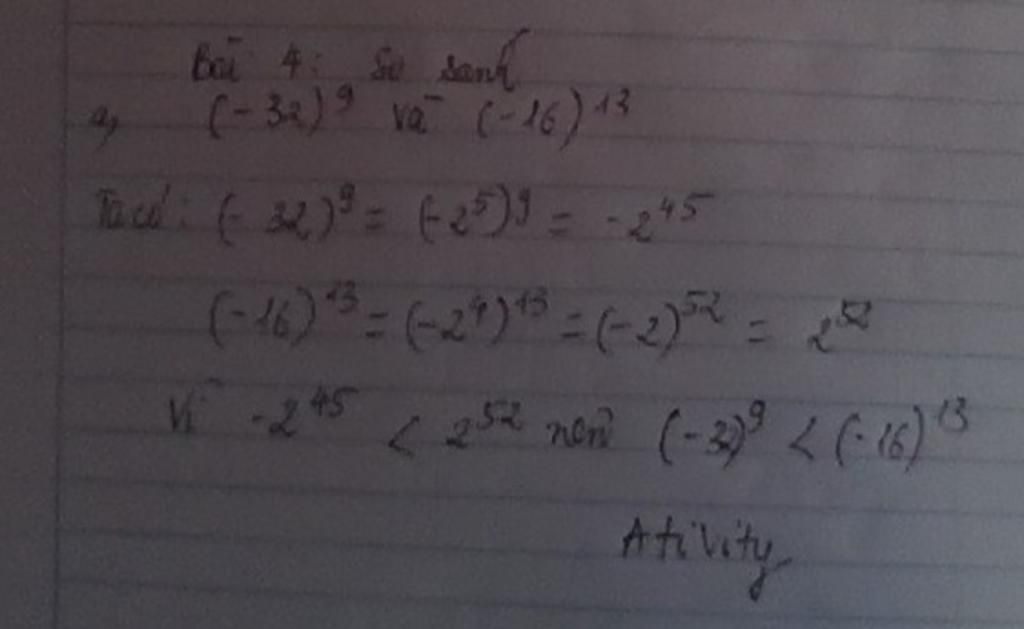 Bài 4: So sánh
a, (-32)⁹ và (-16)¹³
Ta có: (-32)⁹ = (-2⁵)⁹ = -2⁴⁵
(-16)¹³ = (-2⁴)¹³ = (-2)⁵² = 2⁵²
Vì -2⁴⁵ < 2⁵² nên (-32)⁹ < (-16)¹³
Ativity